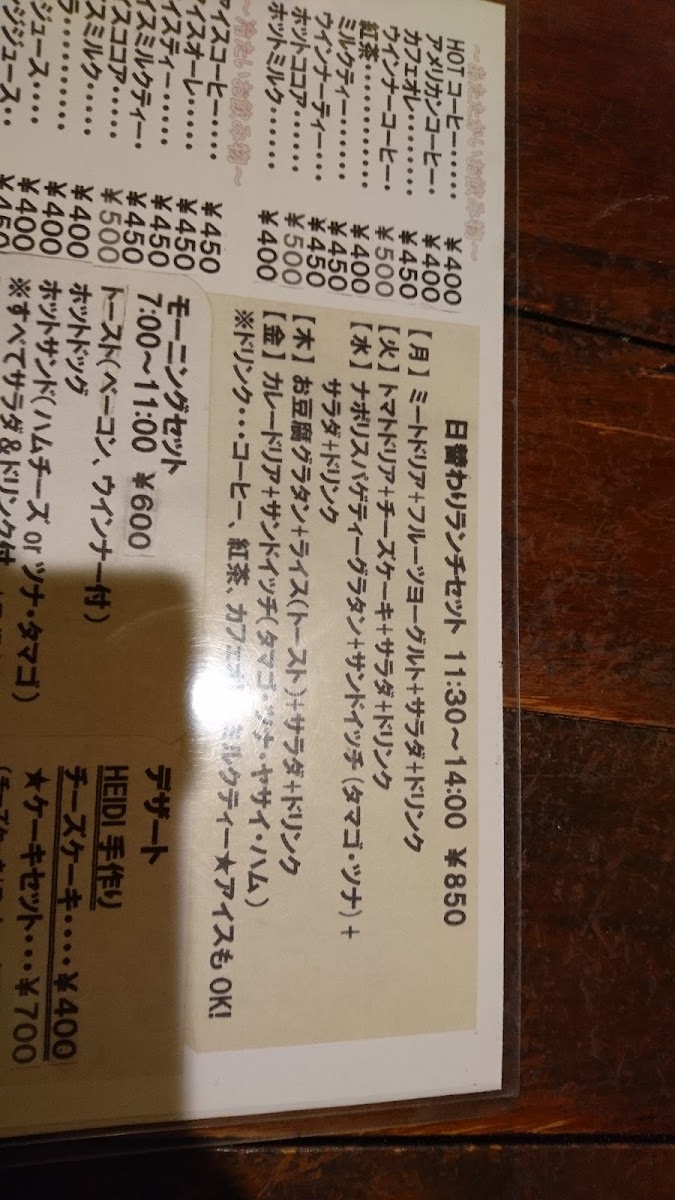 ～あたたかいお飲み物～
HOTコーヒー・・・・・ ¥400
アメリカンコーヒー・・ ¥400
カフェオレ・・・・・・・・ ¥450
ウインナーコーヒー・・ ¥500
紅茶・・・・・・・・・・・ ¥400
ミルクティー・・・・・・ ¥450
ウインナーティー・・・・ ¥450
ホットココア・・・・・・ ¥500
ホットミルク・・・・・・ ¥400
～冷たいお飲み物～
イスコーヒー・・・・・ ¥450
イスオーレ・・・・・・ ¥450
イスティー・・・・・・ ¥450
イスミルクティー・・ ¥450
スココア・・・・・・ ¥500
スミルク・・・・・・ ¥400
ラ・・・・・・・・・ ¥400
ジュース・・・・ ¥400
ジュース・・ ¥450
日替わりランチセット 11:30～14:00 ¥850
【月】ミートドリア+フルーツヨーグルト+サラダ+ドリンク
【火】トマトドリア+チーズケーキ+サラダ+ドリンク
【水】ナポリスパゲティーグラタン+サンドイッチ(タマゴ・ツナ)+
サラダ+ドリンク
【木】お豆腐グラタン+ライス(トースト)+サラダ+ドリンク
【金】カレードリア+サンドイッチ(タマゴ・ツナ・ヤサイ・ハム)
※ドリンク・・・コーヒー、紅茶、カフェ ミルクティー★アイスもOK!
モーニングセット
7:00～11:00 ¥600
トースト(ベーコン、ウインナー付)
ホットドッグ
ホットサンド(ハムチーズ or ツナ・タマゴ)
※すべてサラダ&ドリンク付
デザート
HEIDI 手作り
チーズケーキ・・・・¥400
★ケーキセット・・・¥700